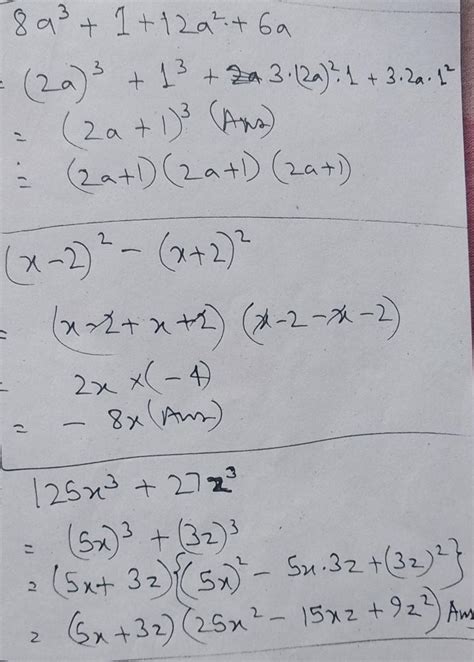 8a³ + 1 + 12a² + 6a
= (2a)³ + 1³ + 3·(2a)²·1 + 3·2a·1²
= (2a+1)³ (Ans)
= (2a+1) (2a+1) (2a+1)
(x-2)² - (x+2)²
= (x-2+x+2) (x-2-x-2)
= 2x×(-4)
= - 8x (Ans)
125x³ + 27z³
= (5x)³ + (3z)³
= (5x+3z){(5x)² - 5x·3z+(3z)²}
= (5x+3z) (25x² - 15xz + 9z²) Ans